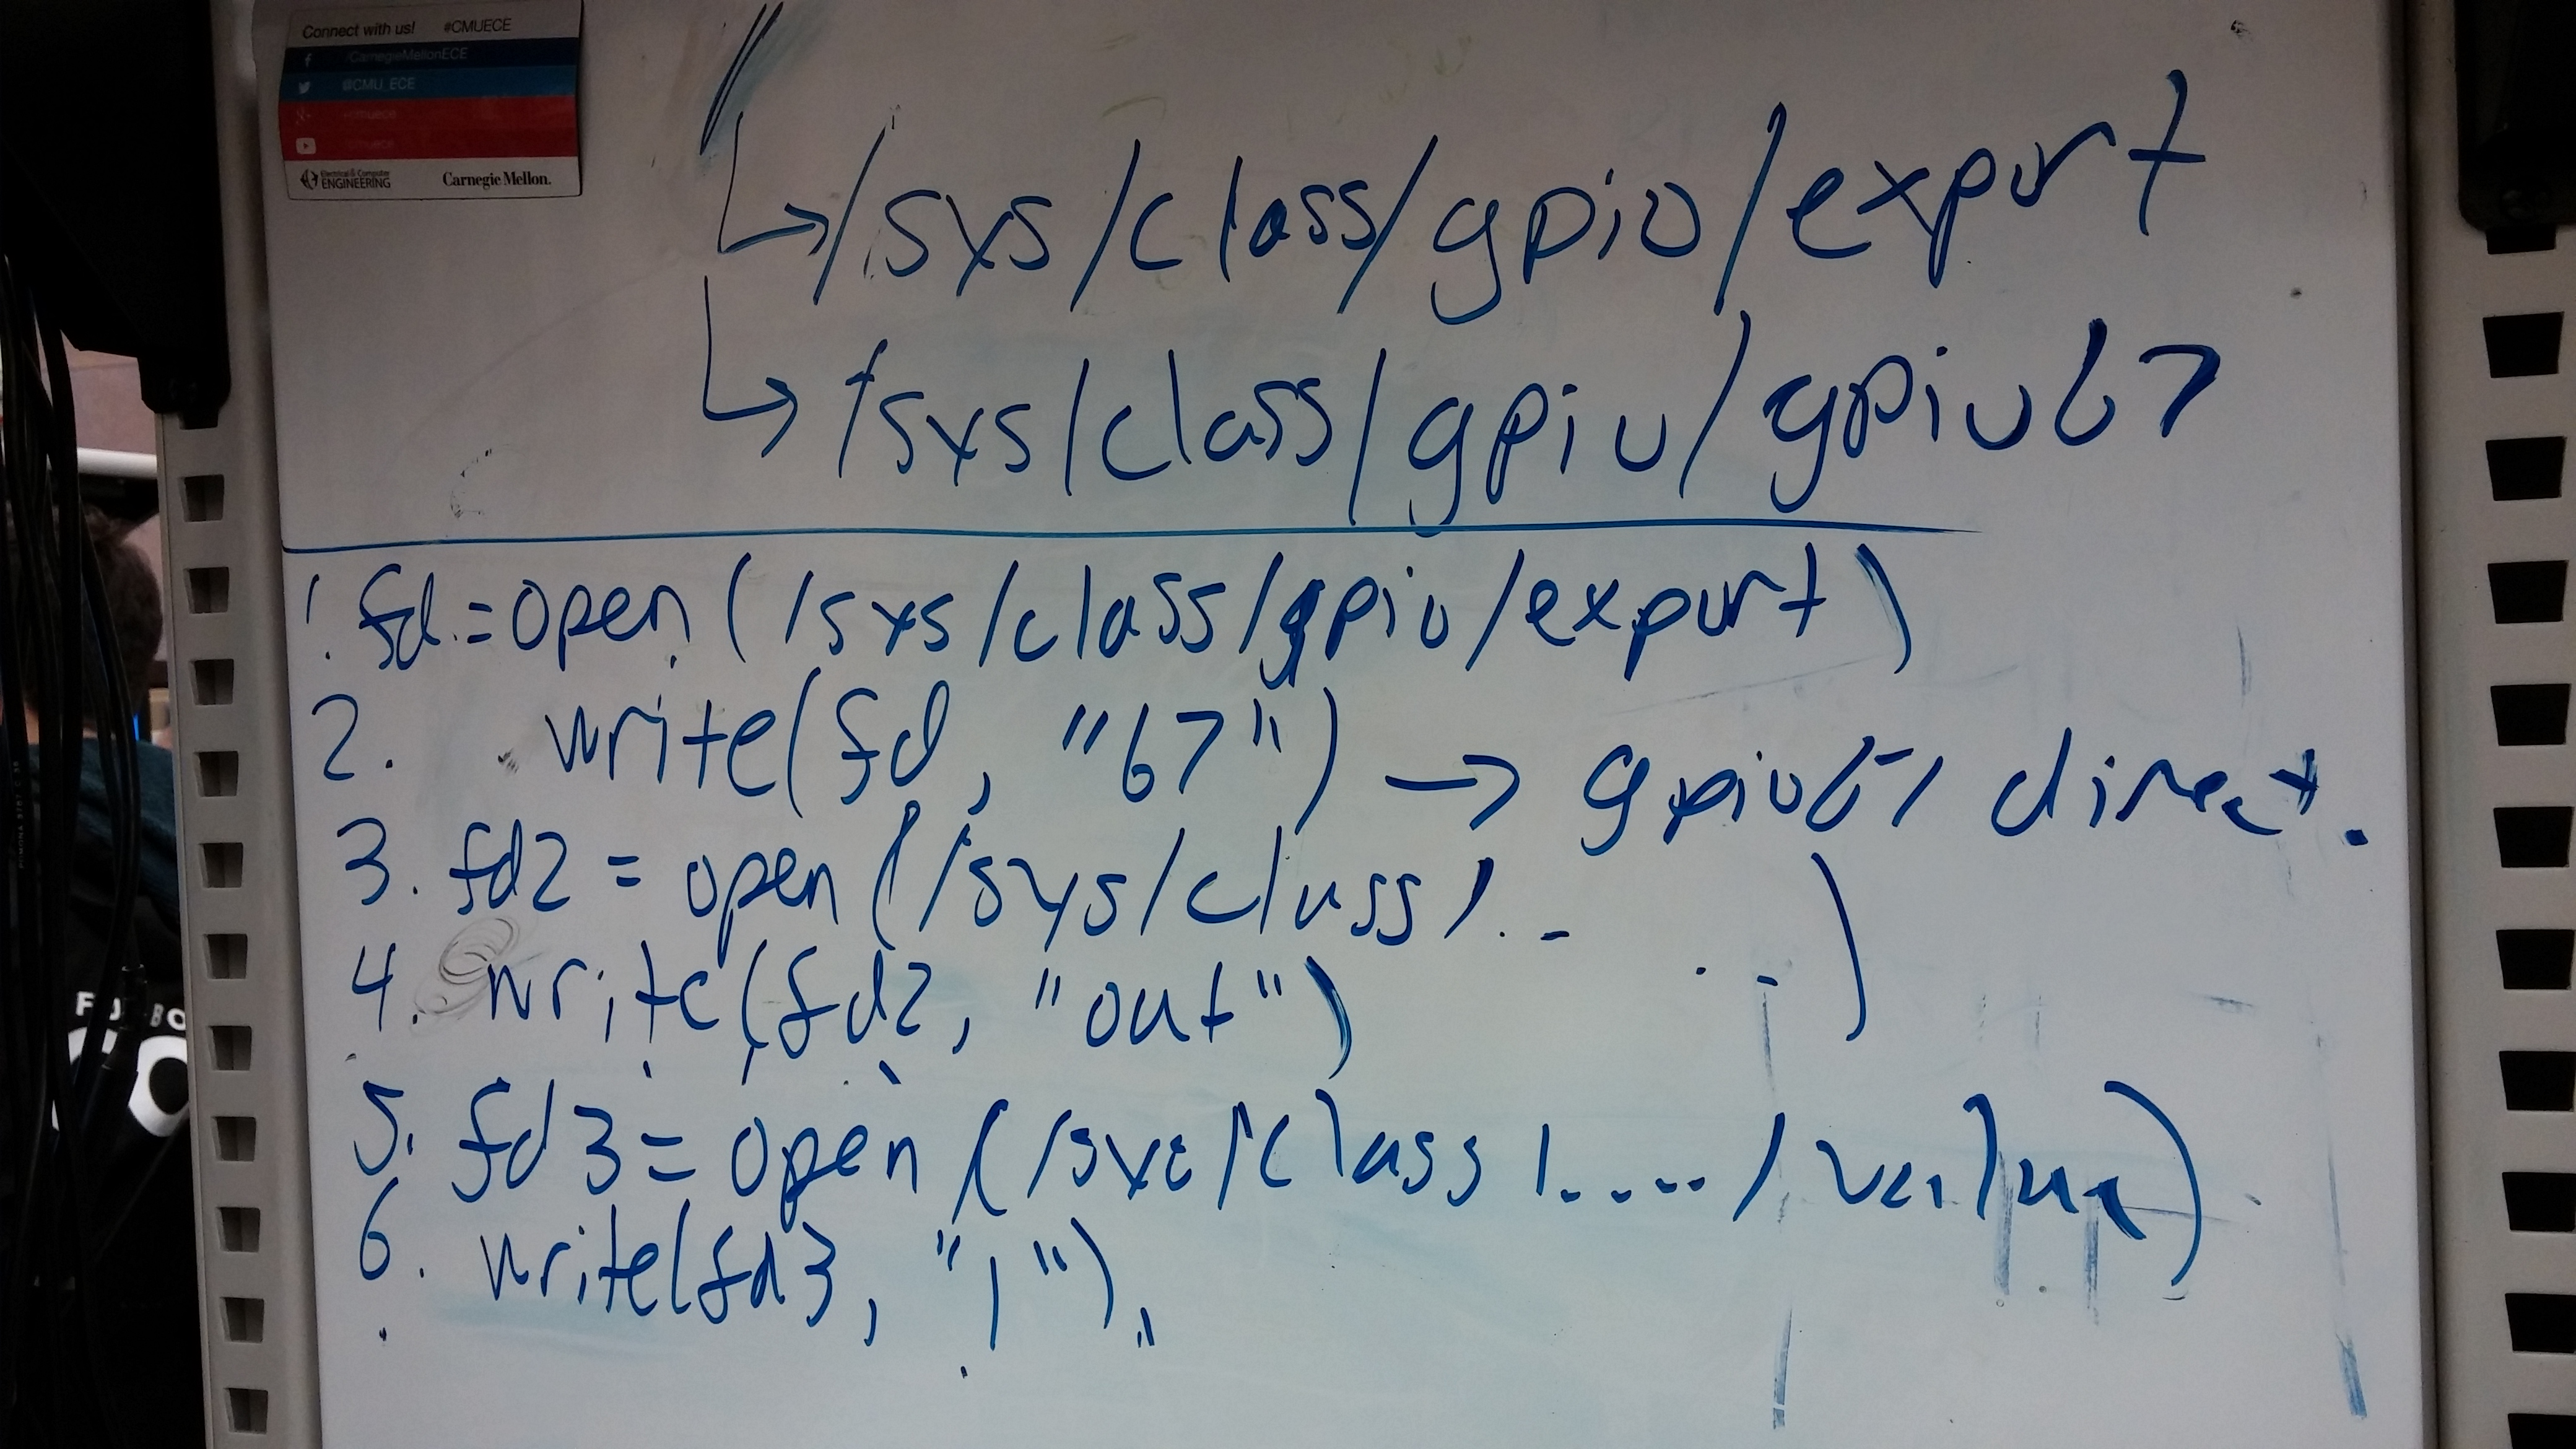 Connect with us! #CMUECE
/CarnegieMellonECE
@CMU_ECE
Electrical & Computer
ENGINEERING
Carnegie Mellon.
/sys/class/gpio/export
/sys/class/gpio/gpio67
1. fd = open (/sys/class/gpio/export)
2. write(fd, "67") → gpio67/direct.
3. fd2 = open (/sys/class/.. ..)
4. write(fd2, "out")
5. fd3 = open (/sys/class/..../value)
6. write(fd3, "1");